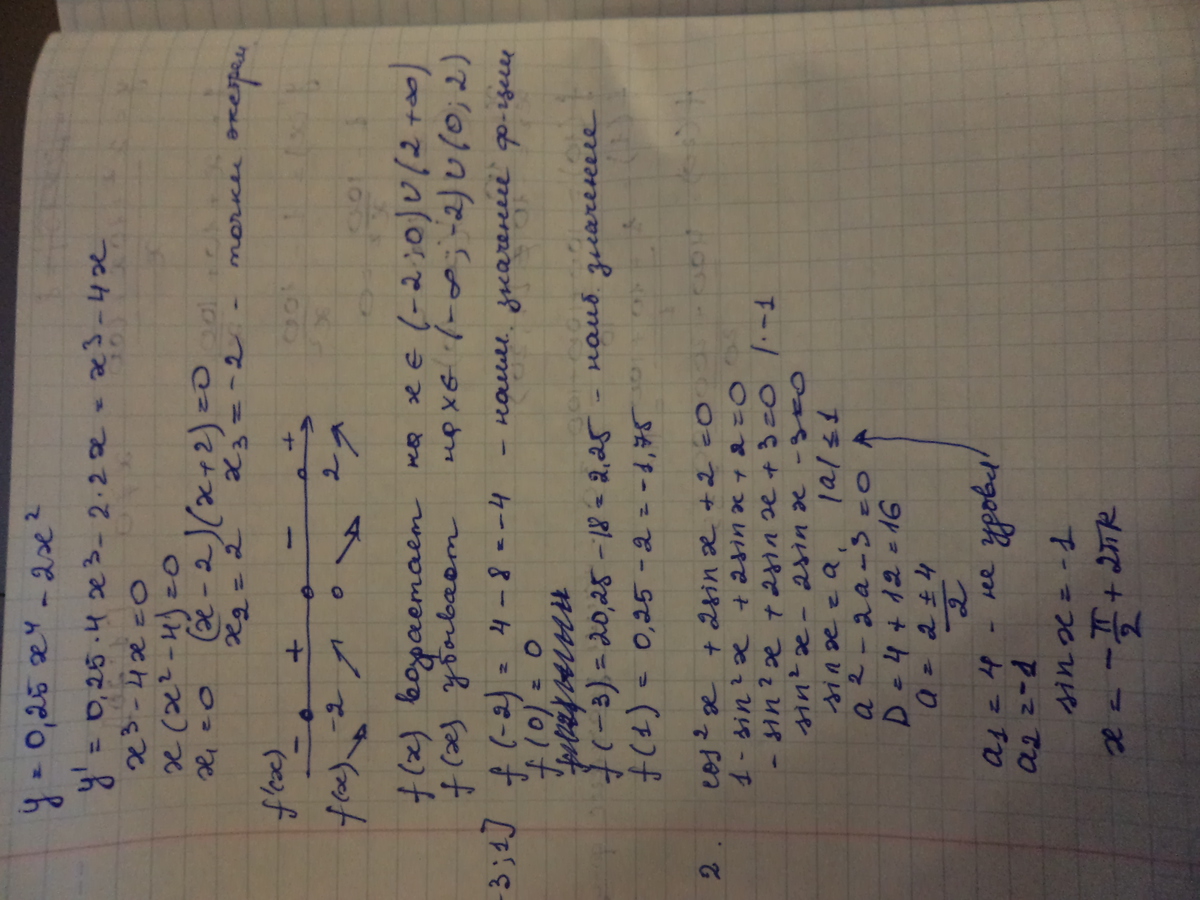 y = 0,25x⁴ - 2x²
y' = 0,25·4x³ - 2·2x = x³ - 4x
x³ - 4x = 0
x(x² - 4) = 0
x₁ = 0 (x - 2)(x + 2) = 0
x₂ = 2 x₃ = -2 - точки экстрем.
f'(x) - + - +
f(x) ↘ -2 ↗ 0 ↘ 2 ↗
f(x) возрастает на x ∈ (-2; 0) ∪ (2 +∞)
f(x) убывает на x ∈ (-∞; -2) ∪ (0; 2)
-3; 1] f(-2) = 4 - 8 = -4 - наим. значение ф-ции
f(0) = 0
f(-3) = 20,25 - 18 = 2,25 - наиб. значение
f(1) = 0,25 - 2 = -1,75
2. cos²x + 2sinx + 2 = 0
1 - sin²x + 2sinx + 2 = 0
- sin²x + 2sinx + 3 = 0 /· -1
sin²x - 2sinx - 3 = 0
sinx = a, |a| ≤ 1
a² - 2a - 3 = 0
D = 4 + 12 = 16
a = 2 ± 4
2
a₁ = 4 - не удовл
a₂ = -1
sinx = -1
x = - π/2 + 2πk